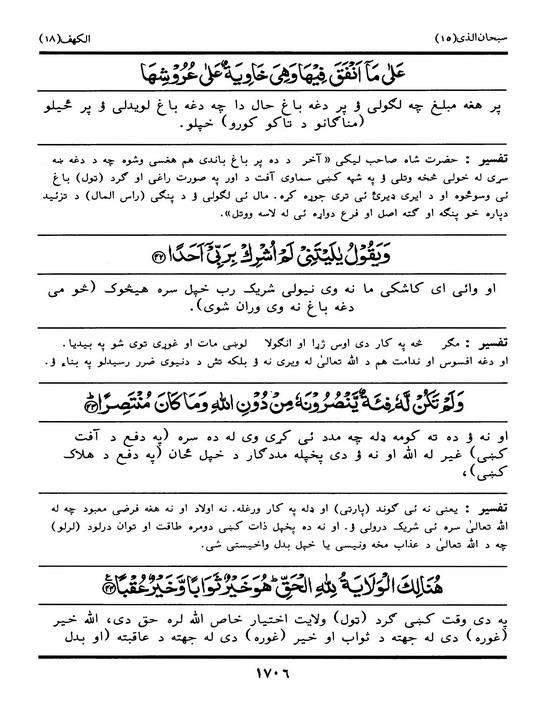 سبحان الذی (١٥)
الکهف (١٨)
عَلٰی مَآ اَنْفَقَ فِیْهَا وَهِیَ خَاوِیَةٌ عَلٰی عُرُوْشِهَا
پر هغه مبلغ چه لګولی ؤ پر دغه باغ حال دا چه دغه باغ لویدلی ؤ پر څیلو
(مناګانو د تاکو کورو) خپلو.
تفسیر : حضرت شاه صاحب لیکی «آخر د ده پر باغ باندی هم هغسی وشوه چه د دغه ښه
سړی له خولی څخه وتلی ؤ په شپه کښی سماوی آفت د اور په صورت راغی او ګرد (ټول) باغ
ئی وسوځوه او د ایری ډیرئ ئی تری جوړه کړه. مال ئی لګولی ؤ د پنګی (راس المال) د تزئید
دپاره خو پنګه او ګټه اصل او فرع دواړه ئی له لاسه ووتل».
وَیَقُوْلُ یٰلَیْتَنِیْ لَمْ اُشْرِكْ بِرَبِّیْٓ اَحَدًا ﴿٤٢﴾
او وائی ای کاشکی ما نه وی نیولی شریک رب خپل سره هیڅوک (څو می
دغه باغ نه وی وران شوی).
تفسیر : مګر څه په کار دی اوس ژړا او انګولا لوښی مات او غوړی توی شو په بیدیا.
او دغه افسوس او ندامت هم د الله تعالیٰ له ویری نه ؤ بلکه تش د دنیوی ضرر رسیدلو په بناء ؤ.
وَلَمْ تَكُنْ لَّهٗ فِئَةٌ یَّنْصُرُوْنَهٗ مِنْ دُوْنِ اللهِ وَمَا كَانَ مُنْتَصِرًا ﴿٤٣﴾
او نه ؤ ده ته کومه ډله چه مدد ئی کړی وی له ده سره (په دفع د آفت
کښی) غیر له الله او نه ؤ دی پخپله مددګار د خپل ځان (په دفع د هلاک
کښی)،
تفسیر : یعنی نه ئی ګوند (پارتی) او ډله په کار ورغله. نه اولاد او نه هغه فرضی معبود چه له
الله تعالیٰ سره ئی شریک درولی ؤ. او نه ده پخپل ذات کښی دومره طاقت او توان درلود (لرلو)
چه د الله تعالیٰ د عذاب مخه ونیسی یا خپل بدل واخیستی شی.
هُنَالِكَ الْوَلَایَةُ لِلّٰهِ الْحَقِّ هُوَ خَیْرٌ ثَوَابًا وَّخَیْرٌ عُقْبًا ﴿٤٤﴾
په دی وقت کښی ګرد (ټول) ولایت اختیار خاص الله لره حق دی، الله خیر
(غوره) دی له جهته د ثواب او خیر (غوره) دی له جهته د عاقبته (او بدل
١٧٠٦